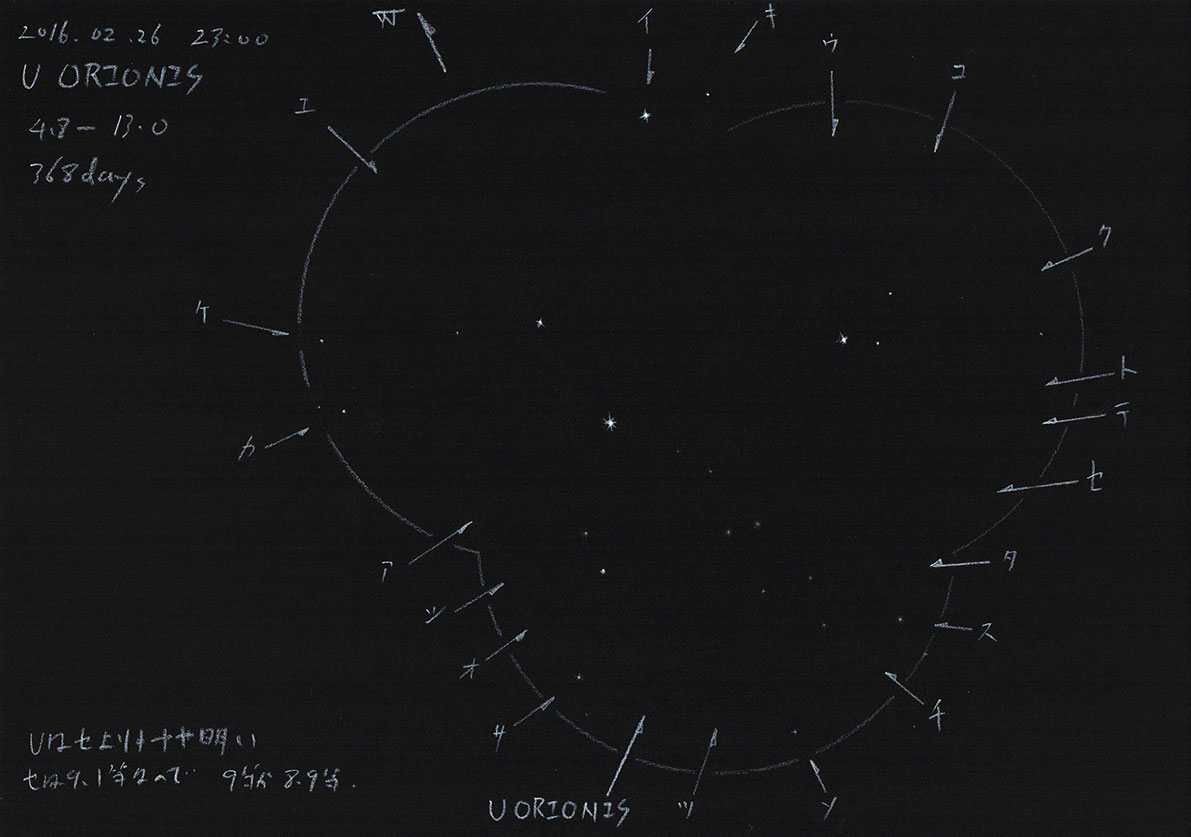 2016.02.26 23:00
U ORIONIS
4.8－13.0
368days
W
イ
キ
ウ
コ
エ
ク
ケ
ト
テ
カ
セ
ア
タ
シ
ス
オ
チ
サ
Uはセよりもやや明い
セは9.1等なので 9等か8.9等.
U ORIONIS
ツ
ソ